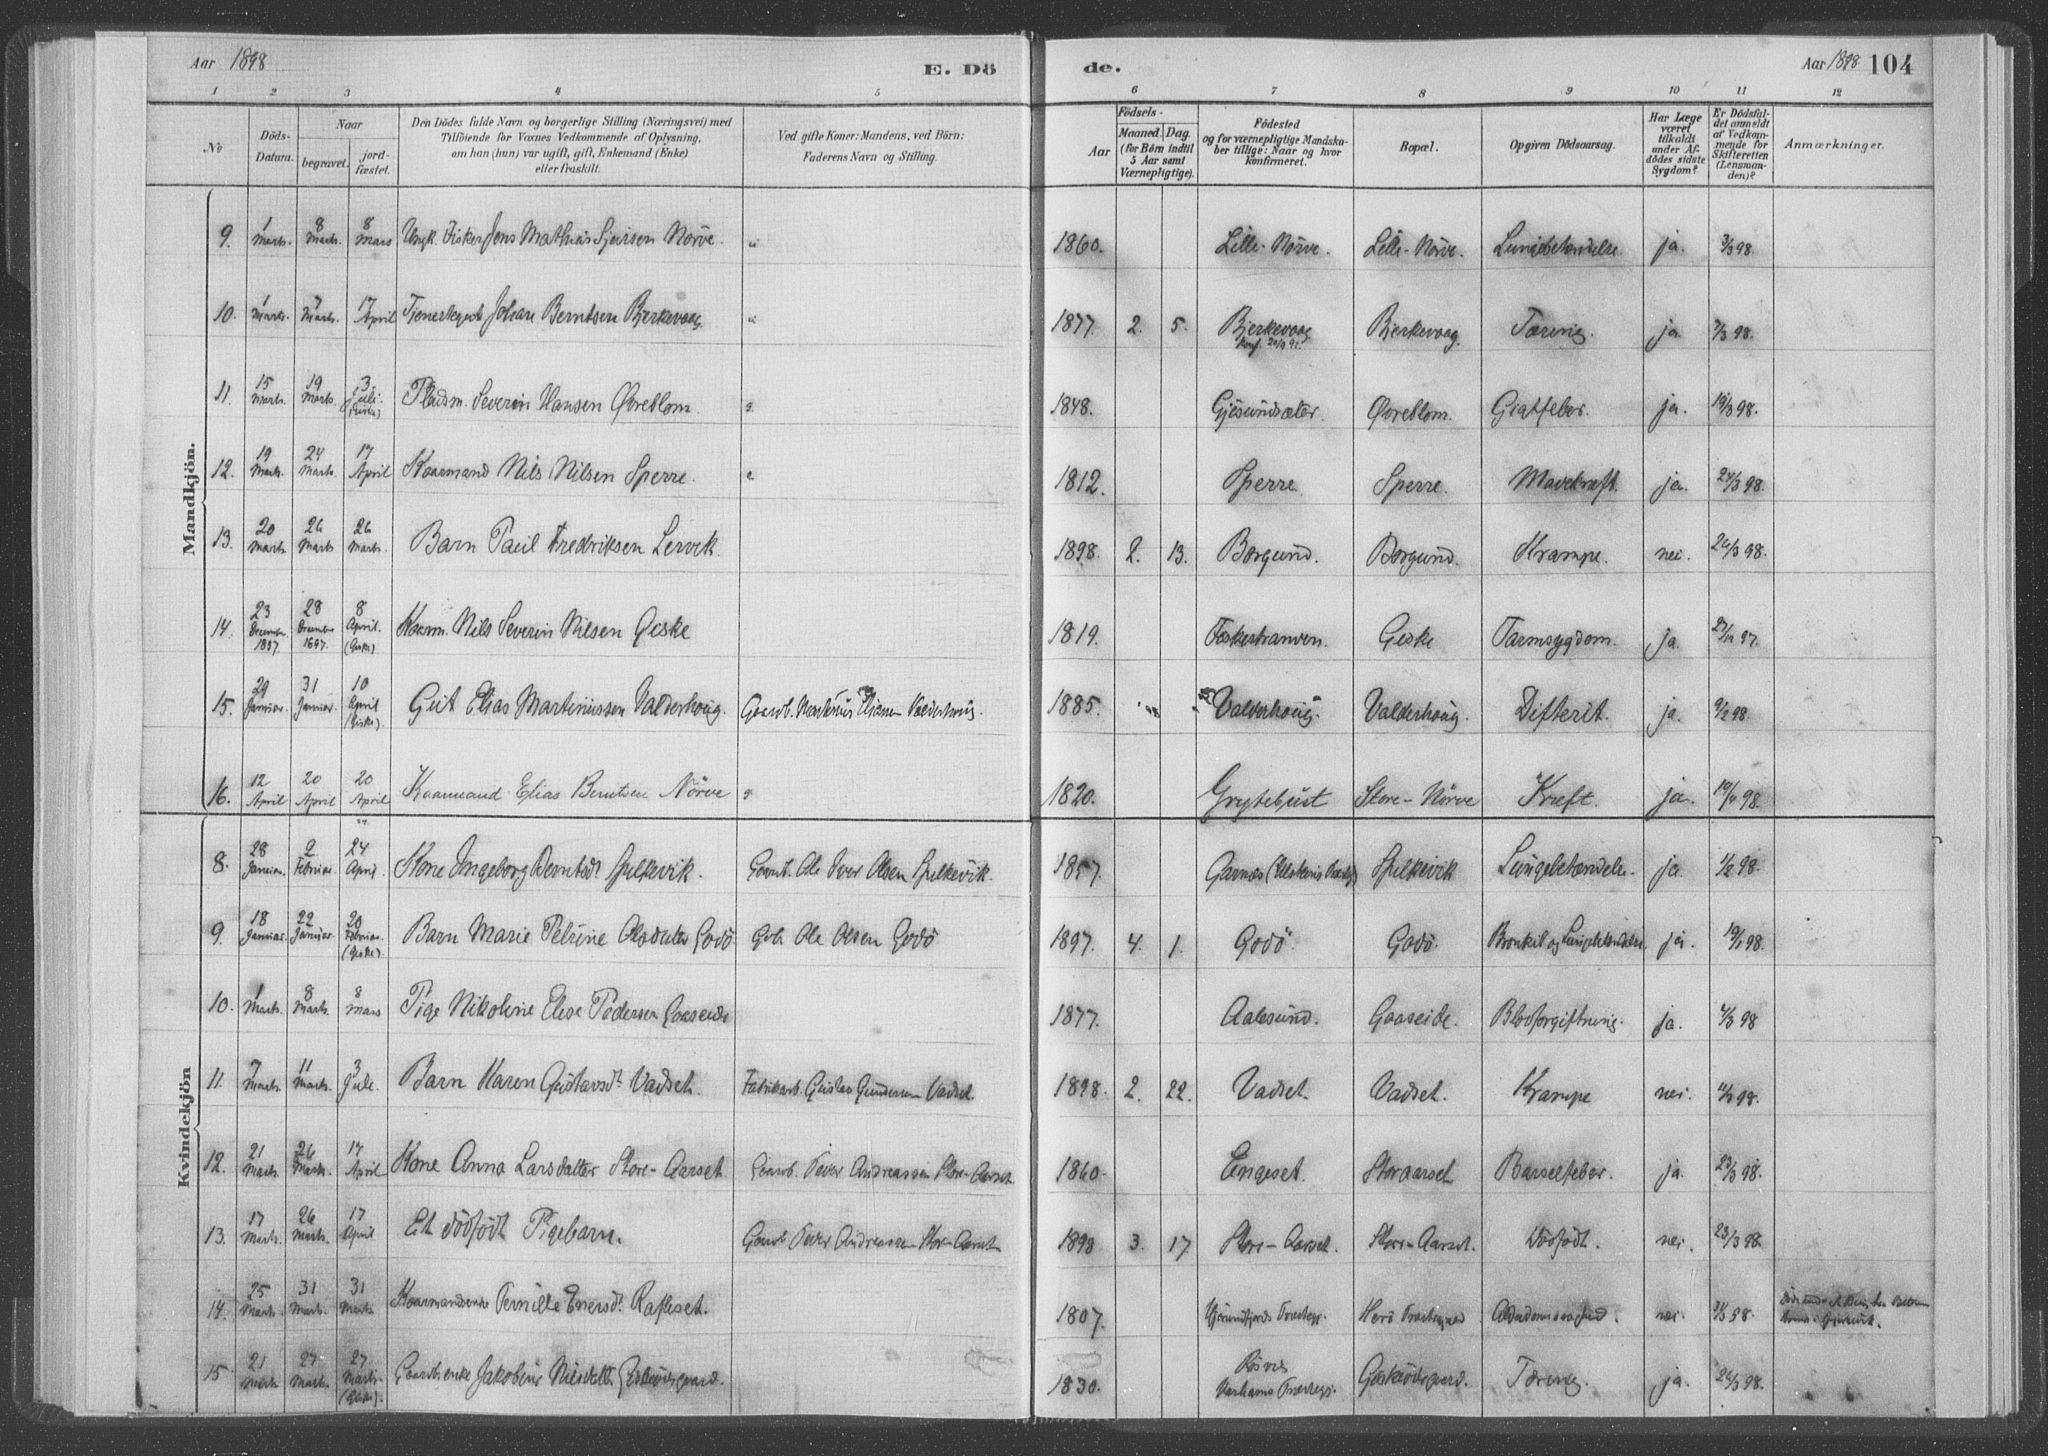 Aar 1898
E. Dö
de.
Aar 1898. 104
1 2 3 4 5 6 7 8 9 10 11 12
No
Döds-Datum.
Naar
begravet.
jord-fæstet.
Den Dödes fulde Navn og borgerlige Stilling (Næringsvei) med
Tilföiende for Voxnes Vedkommende af Oplysning,
om han (hun) var ugift, gift, Enkemand (Enke)
eller fraskilt.
Ved gifte Koner: Mandens, ved Börn:
Faderens Navn og Stilling.
Födsels-
Aar
Maaned. Dag.
(for Börn indtil
5 Aar samt
Værnepligtige).
Födested
og for værnepligtige Mandska-
ber tillige: Naar og hvor
konfirmeret.
Bopæl.
Opgiven Dödsaarsag.
Har Læge
været
tilkaldt
under Af-
dödes sidste
Sygdom?
Er Dödsfal-
det anmeldt
af Vedkom-
mende for
Skifteretten
(Lensman-
den)?
Anmærkninger.
Mandkjön.
9. 1 Marts. 8 Marts. 8 Mars Ungk. Fisker Jens Mathias Sjursen Nörve. 1860. Lille-Nörve. Lille-Nörve. Lungebetændelse ja. 3/3 98.
10. 1 Marts. 7 Marts. 17 April Johan Berntsen Bjerkevaag. 1877. 2. 5. Bjerkevaag Bjerkevaag. Tæring. ja. 7/3 98.
11. 15 Marts. 19 Marts. 3 Juli. Pladsm. Severin Hansen Øvreblom. g. 1848. Gjösundsæter. Øvreblom. ja. 19/3 98.
12. 19 Marts. 24 Marts. 17 April Kaarmand Nils Nilsen Sperre. e 1812. Sperre. Sperre. Mavekræft. ja. 24/3 98.
13. 20 Marts 26 Marts 26 Marts. Barn Paul Fredriksen Lervik. 1898. 2. 13. Borgund. Borgund. Krampe. nei. 26/3 98.
14. 23 December 1897. 28 December 1897. 8 April. (Giske) Kaarm. Nils Severin Nilsen Giske 1819. Giske Tarmsygdom. ja. 27/12 97.
15. 29 Januar. 31 Januar. 10 April (Giske) Gut Elias Martinussen Valderhoug. Gaardb. Martinus Eliassen Valderhoug. 1885. Valderhoug. Valderhoug. Difterit. ja. 9/2 98.
16. 12 April 20 April 20 April Kaarmand Elias Berntsen Nörve g 1820. Grytebust Store-Nörve Kræft. ja. 19/4 98.
Kvindekjön
8. 28 Januar. 2 Februar. 24 April. Kone Ingeborg Berntsdt Spilkevik. Gaardb. Ole Iver Olsen Spilkevik. 1857. Garnæs Spilkevik Lungebetændelse. ja. 1/2 98.
9. 18 Januar. 22 Januar. 20 Februar. (Giske) Barn Marie Petrine Olsdatter Godö Gbr. Ole Olsen Godö 1897. 4. 1. Godö Godö. Bronkit og Lungebetændelse ja. 19/1 98.
10. 1 Marts. 8 Marts. 8 Mars Pige Nikoline Elise Pedersen Gaaseide 1877. Aalesund. Gaaseide. Blodforgiftning. ja. 4/3 98
11. 7 Marts 11 Marts. 3 Juli. Barn Karen Gustavsdt Vadset. Fabrikarb. Gustav Gundersen Vadset. 1898. 2. 22. Vadset. Vadset. Krampe nei. 11/3 98.
12. 21 Marts. 26 Marts. 17 April Kone Anna Larsdatter Store-Aarset Gaardb. Peder Andreassen Store-Aarset 1860. Engeset. Storaarset Barselfeber. ja. 23/3 98.
13. 17 Marts. 26 Marts. 17 April Et dödfödt Pigebarn. Gaardb. Peder Andreassen Store-Aarset 1898 3. 17. Store-Aarset. Store-Aarset. Dödfödt. nei. 23/3 98.
14. 25 Marts. 31 Marts. 31 Marts. Kaarmandsenke Pernille Enersdt. Rafteset. 1807. Hjörundfjords Præstegj. Herö Præstegjeld Alderdomssvaghed. nei. 31/3 98.
15. 21 Marts 27 Marts. 27 Marts. (Giske). Gaardb.enke Jakobine Nilsdatter Giskeödegaard. 1830. Tæring. ja. 26/3 98.